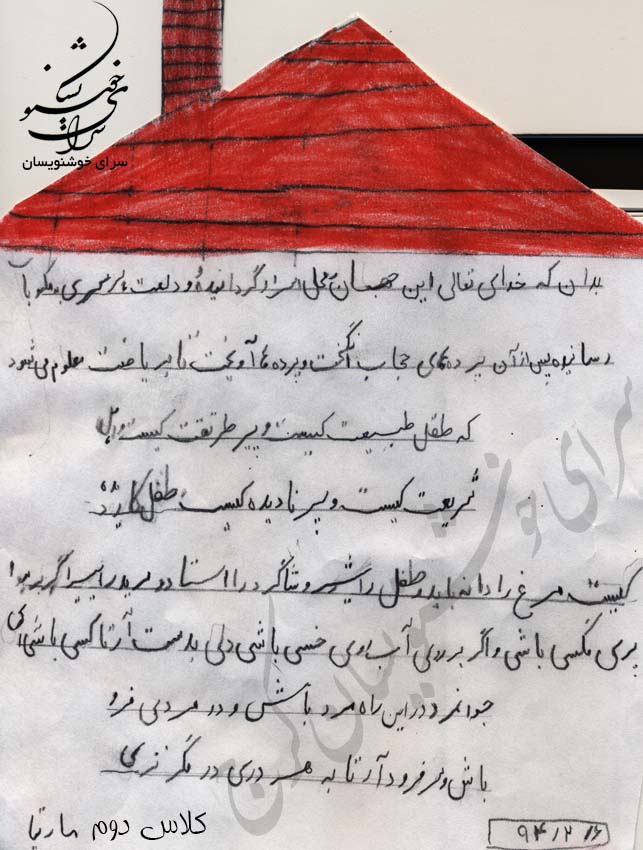 سرای خوشنویسان
بدان که خدای تعالی این جهان محل اسرار گردانیده و دلعت
رسانیده پس از آن پرده های حجاب انگخت و پرده ها آویخت تا بریاضت معلوم می شود
که طفل طبیعت کیست و پیر طریقت کیست و اهل
شریعت کیست و پیر نادیده کیست طفل
کیست مرغ را دانه باید و طفل را شیر و شاگرد را استاد و مرید را پیر اگر بر هوا
پری مگسی باشی و اگر بر روی آب روی خسی باشی دلی بدست آر تا کسی باشی ای
جوانمرد در این راه مرد باش و در مردی فرد
باش و سر فرود آر تا به هر دری در مگر نزی
کلاس دوم مارتیا
۹۴/۲/۶
سرای خوشنویسان کرج